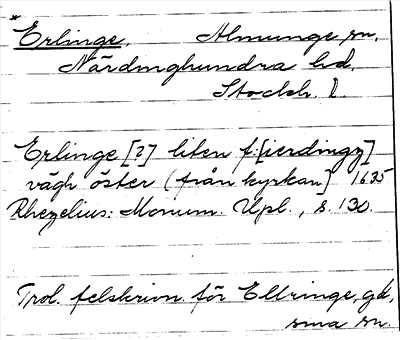 *
Erlinge, Almunge sn,
Närdinghundra hd,
Stockh. l.
Erlinge [?] liten f:[ierdingz]
vägh öster (från kyrkan] 1635
Rhezelius: Monum. Upl., s. 130.
Trol. felskrivn. för Ellringe, gd,
sma sn.